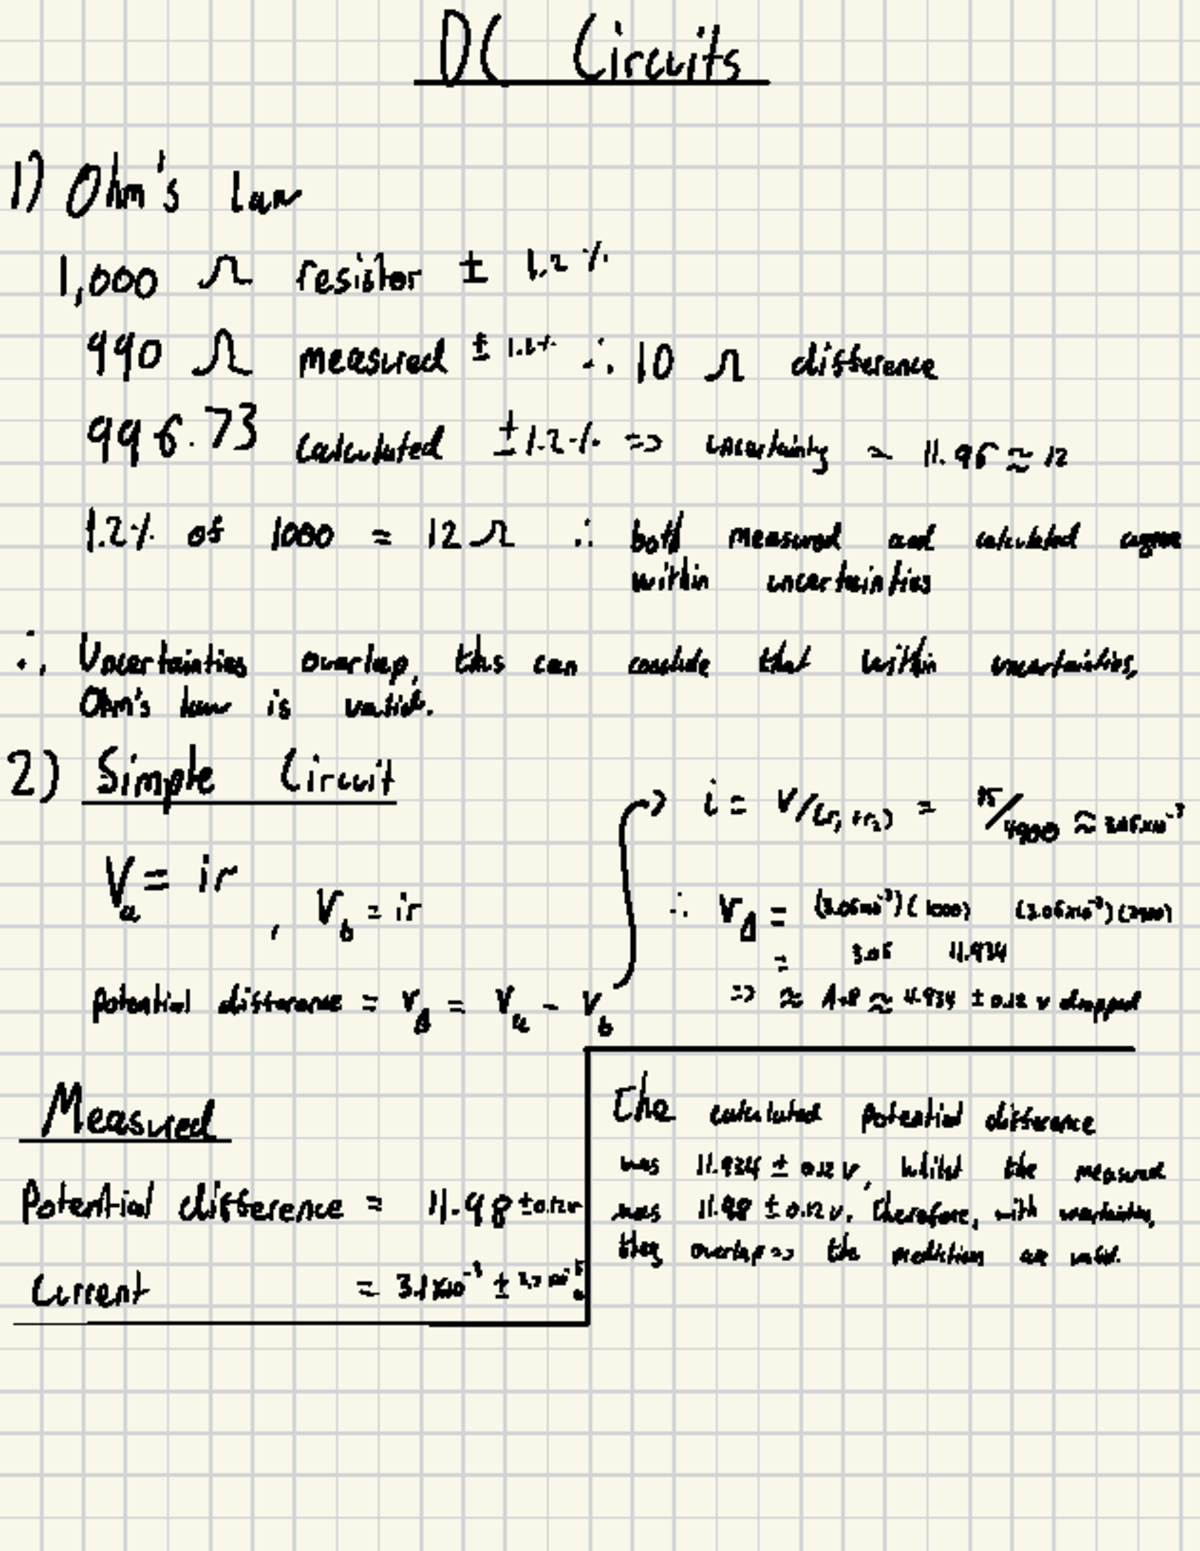 DC Circuits
1) Ohm's law
1,000 Ω resistor ± 1.2%
990 Ω measured ± 1.2% ∴ 10 Ω difference
996.73 calculated ± 1.2% => uncertainty = 11.96 ≈ 12
1.2% of 1000 = 12Ω ∴ both measured and calculated agree
within uncertainties
∴ Uncertainties overlap, this can conclude that within uncertainties,
Ohm's law is valid.
2) Simple Circuit
V_a = ir , V_b = ir
potential difference = V_Δ = V_a - V_b
-> i = V/(r₁+r₂) = 15/4900 ≈ 3.06x10⁻³
∴ V_Δ = (3.06x10⁻³)(1000) (3.06x10⁻³)(3900)
= 3.06 11.934
=> ≈ ≈ 11.934 ± 0.12 v dropped
Measured
Potential difference = 11.98 ± 0.12v
Current = 3.1x10⁻³ ±
The calculated potential difference
was 11.934 ± 0.12 v, whilst the measured
was 11.98 ± 0.12v. Therefore, with uncertainties,
they overlap => the predictions are valid.